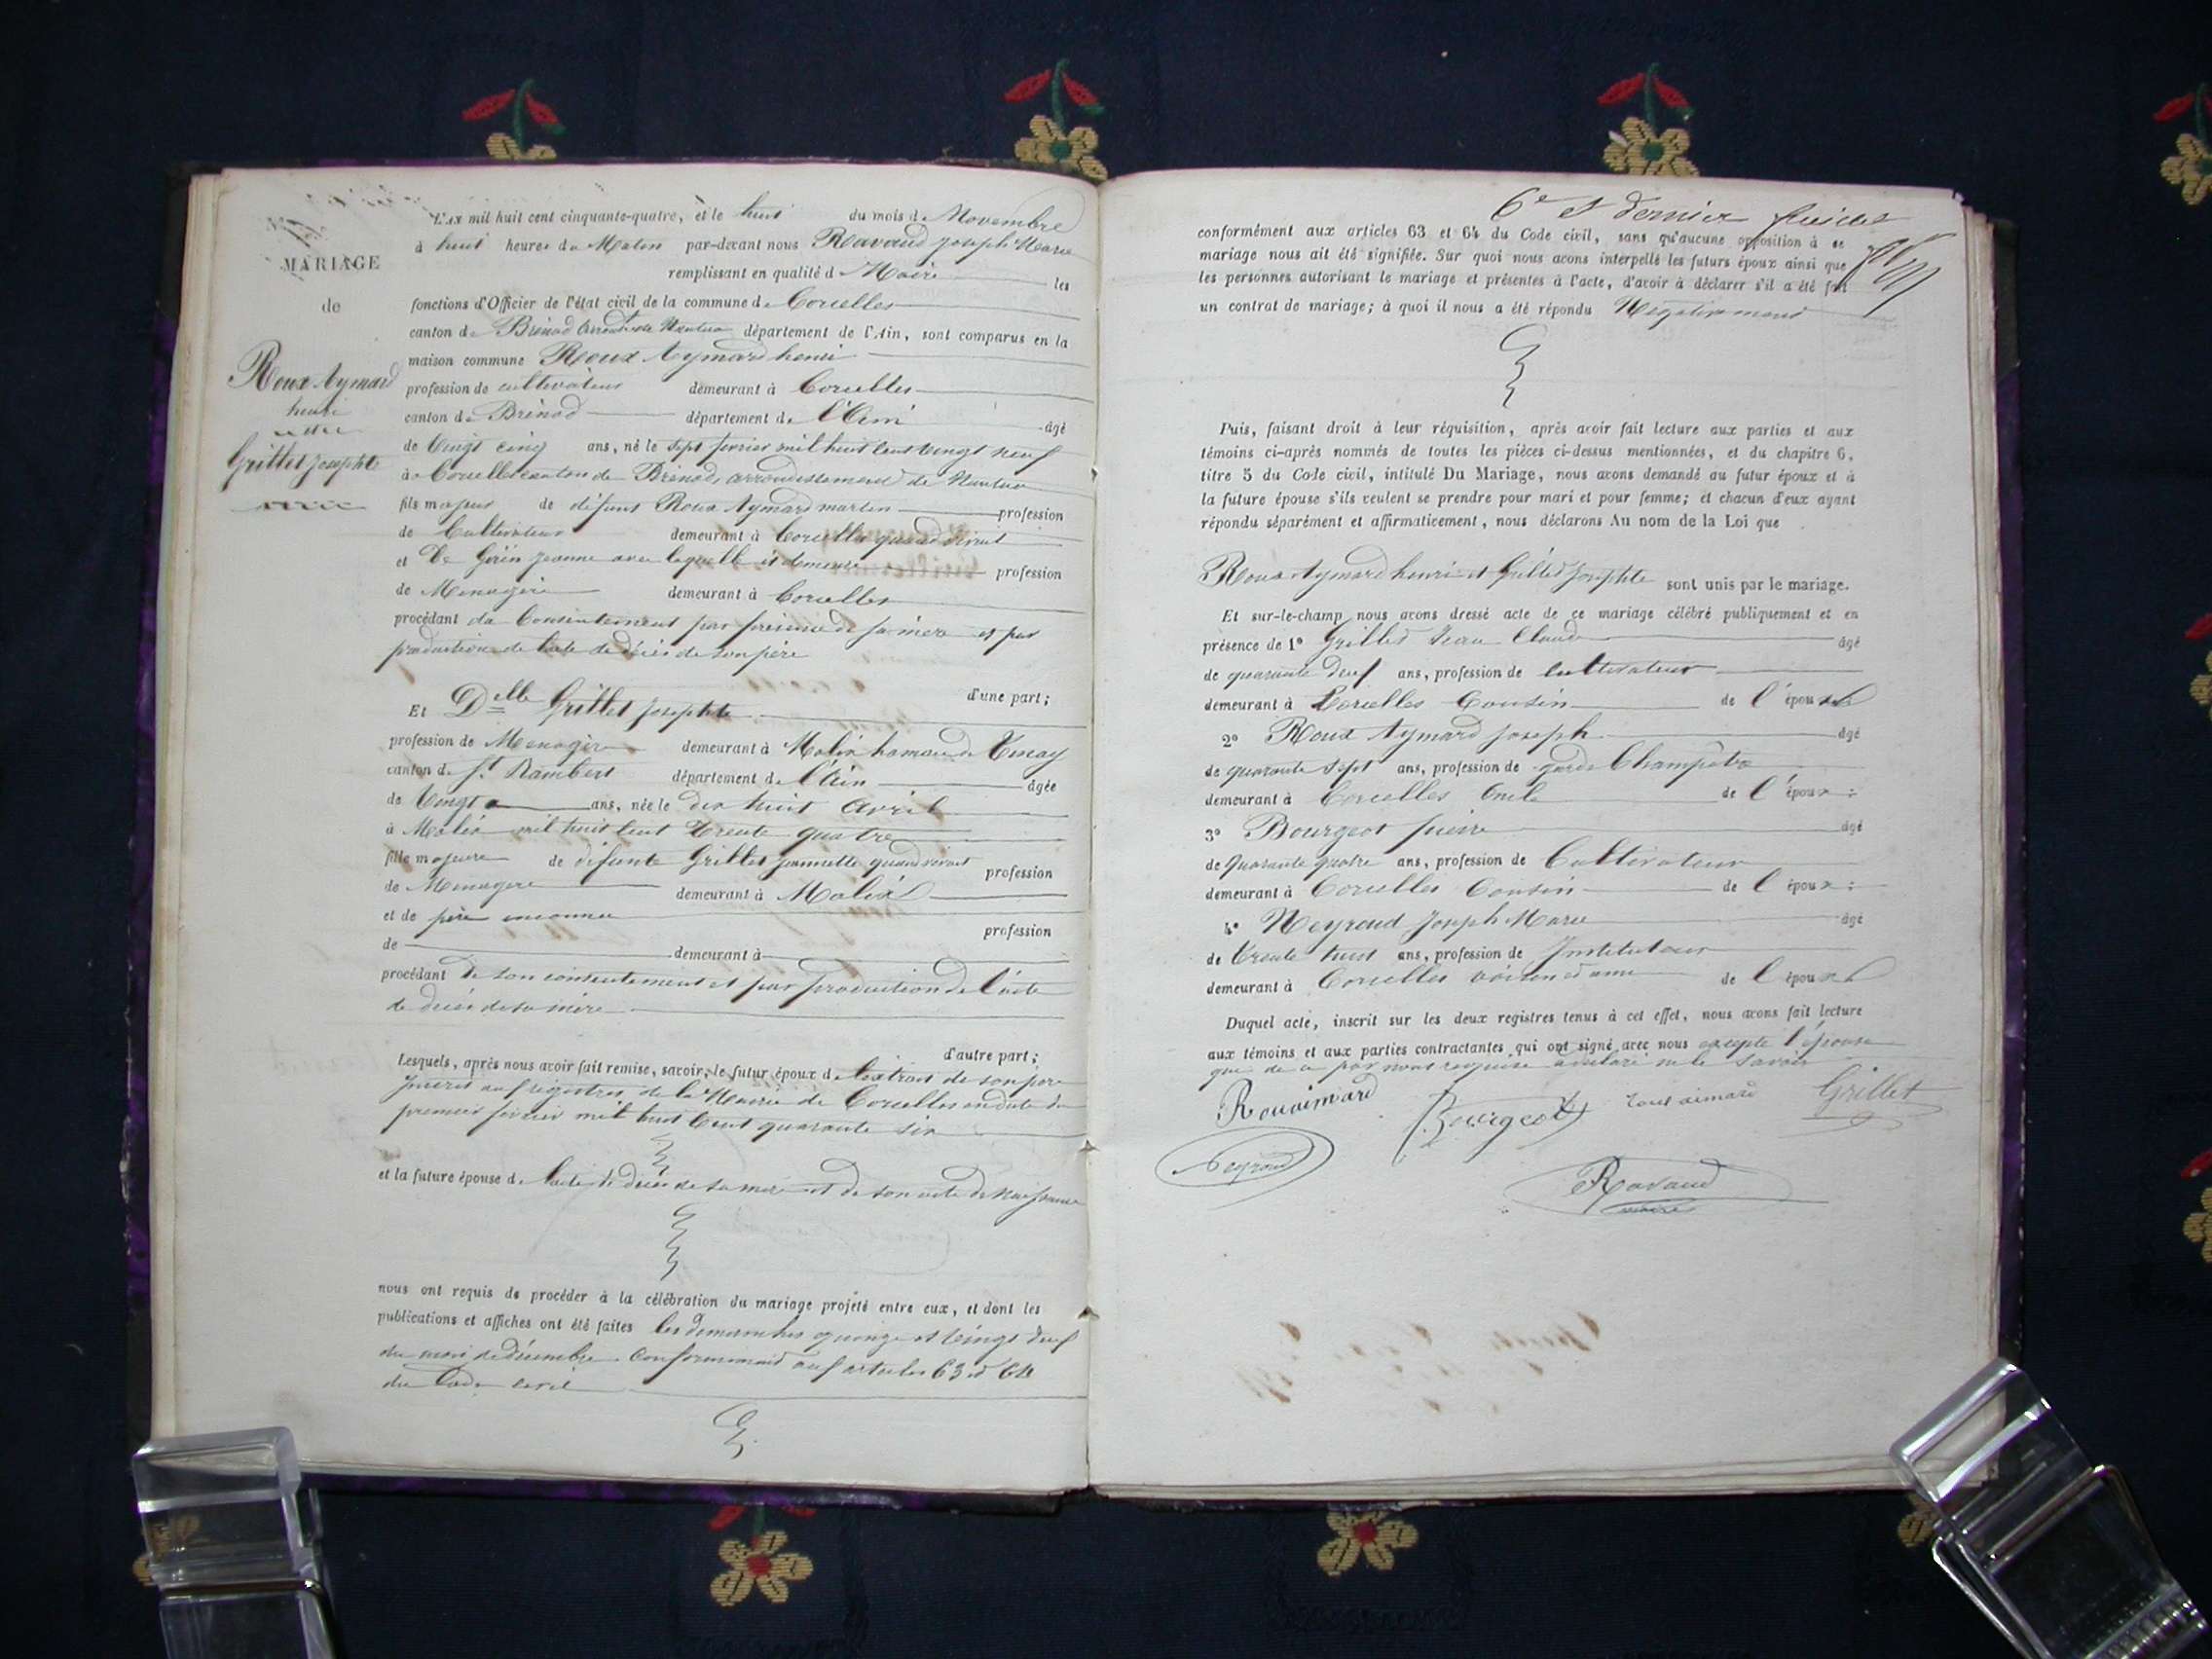 MARIAGE
de
Roux Aymard
henri
Grillet Josephte
L'AN mil huit cent cinquante-quatre, et le huit du mois de Novembre
à huit heures du Matin par-devant nous Ravaud Joseph Marie
remplissant en qualité de Maire les
fonctions d'Officier de l'état civil de la commune de Corcelles
canton de Brénod arrondt de Nantua département de l'Ain, sont comparus en la
maison commune Roux Aymard henri
profession de cultivateur demeurant à Corcelles
canton de Brénod département de l'Ain âgé
de Vingt cinq ans, né le sept fevrier mil huit cent vingt neuf
à Corcelles canton de Brénod, arrondissement de Nantua
fils majeur de défunt Roux Aymard martin profession
de Cultivateur demeurant à Corcelles quand vivait
et de Jeanne avec laquelle il demeure profession
de Menagère demeurant à Corcelles
procédant du Consentement par présence de sa mère et par
production de l'acte de décès de son père
d'une part;
Et Delle Grillet Josephte
profession de Menagère demeurant à Malix hameau de Tenay
canton de St Rambert département de l'Ain âgée
de Vingt ans, née le dix huit avril
à Malix mil huit cent trente quatre
fille majeure de défunte Grillet Jeannette quand vivait profession
de Menagere demeurant à Malix
et de père inconnu profession
de demeurant à
procédant de son consentement et par production de l'acte
de décès de sa mère
d'autre part;
Lesquels, après nous avoir fait remise, savoir, le futur époux de l'extrait de son père
Inscrit aux registres de la Mairie de Corcelles en date du
premier fevrier mil huit cent quarante six
et la future épouse de l'acte de décès de sa mère et de son acte de Naissance
nous ont requis de procéder à la célébration du mariage projeté entre eux, et dont les
publications et affiches ont été faites les dimanches quinze et vingt deux
du mois de décembre conformément aux articles 63 et 64
du Code civil
6e et dernier feuillet
conformément aux articles 63 et 64 du Code civil, sans qu'aucune opposition à ce
mariage nous ait été signifiée. Sur quoi nous avons interpellé les futurs époux ainsi que
les personnes autorisant le mariage et présentes à l'acte, d'avoir à déclarer s'il a été fait
un contrat de mariage; à quoi il nous a été répondu Négativement
Puis, faisant droit à leur réquisition, après avoir fait lecture aux parties et aux
témoins ci-après nommés de toutes les pièces ci-dessus mentionnées, et du chapitre 6,
titre 5 du Code civil, intitulé Du Mariage, nous avons demandé au futur époux et à
la future épouse s'ils veulent se prendre pour mari et pour femme; et chacun d'eux ayant
répondu séparément et affirmativement, nous déclarons Au nom de la Loi que
Roux Aymard henri et Grillet Josephte sont unis par le mariage.
Et sur-le-champ nous avons dressé acte de ce mariage célébré publiquement et en
présence de 1° Grillet Jean Claude âgé
de quarante deux ans, profession de cultivateur
demeurant à Corcelles Cousin de l'époux
2° Roux Aymard Joseph âgé
de quarante sept ans, profession de garde Champêtre
demeurant à Corcelles Oncle de l'époux;
3° Bourgeot pierre âgé
de Quarante quatre ans, profession de Cultivateur
demeurant à Corcelles Cousin de l'époux;
4° Neyroud Joseph Marie âgé
de trente huit ans, profession de Instituteur
demeurant à Corcelles voisin et ami de l'époux
Duquel acte, inscrit sur les deux registres tenus à cet effet, nous avons fait lecture
aux témoins et aux parties contractantes qui ont signé avec nous excepté l'épouse
que de ce par nous requise a déclaré ne le savoir
Rouaimard Bourgeot roux aimard Grillet
Neyroud Ravaud
maire